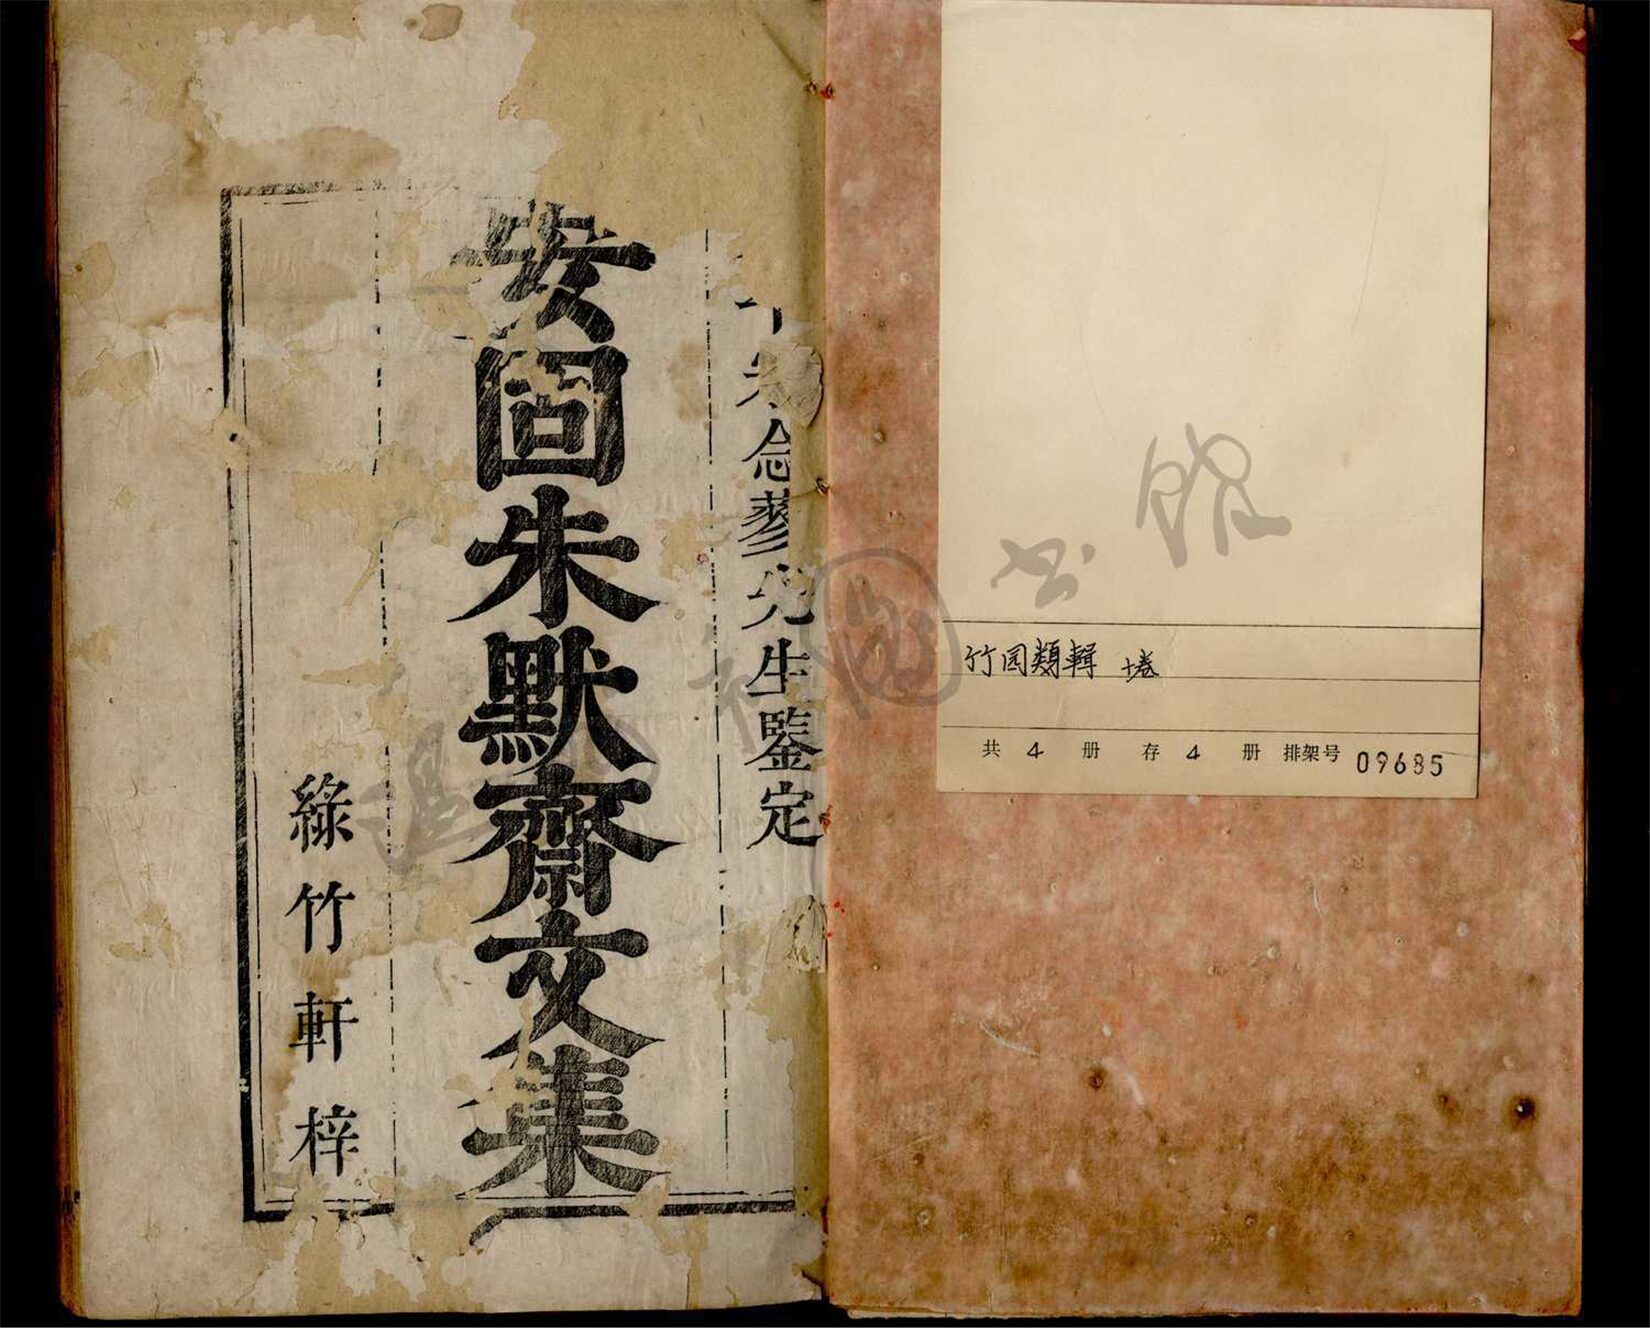 竹园類輯 十卷
共 4 册 存 4 册 排架号 09685
念蓼先生鑒定
安固朱默齋文集
綠竹軒梓